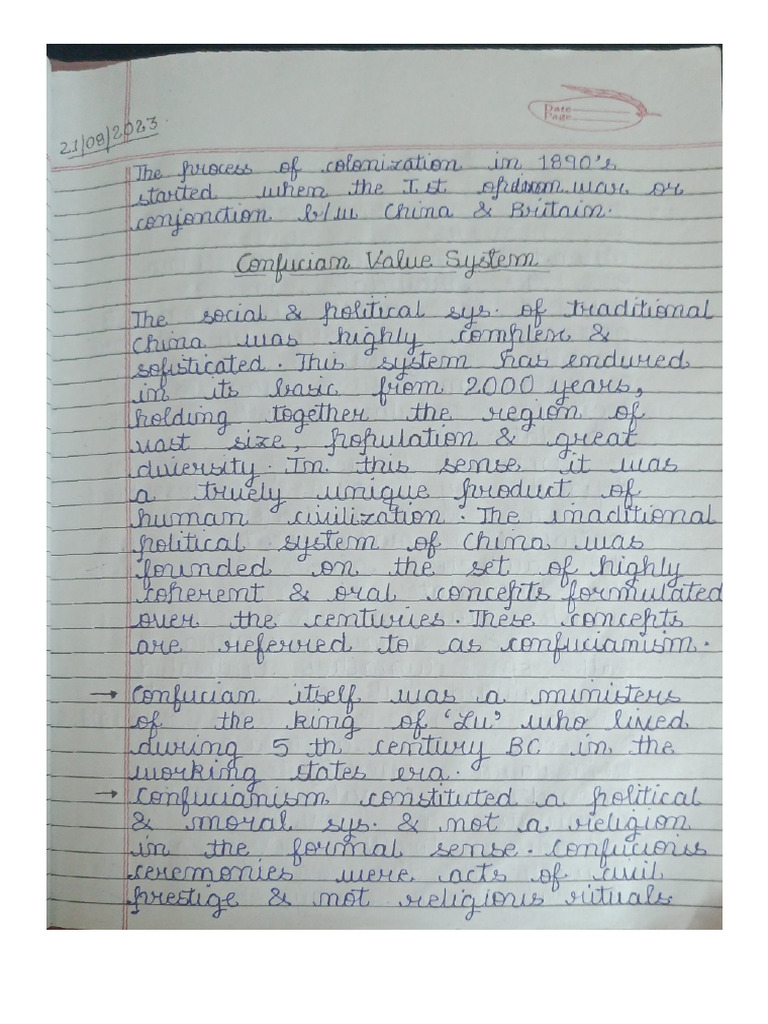 Date
Page
21/08/2023
The process of colonization in 1890's
started when the Ist opium war or
conjonction b/w China & Britain.
Confucian Value System
The social & political sys. of traditional
China was highly complex &
sofisticated. This system has endured
in its basic from 2000 years,
holding together the region of
vast size, population & great
diversity. In this sense it was
a truely unique product of
human civilization. The traditional
political system of China was
founded on the set of highly
coherent & oral concepts formulated
over the centuries. These concepts
are referred to as confucianism.
→ Confucian itself was a ministers
of the king of 'Lu' who lived
during 5 th century BC in the
working states era.
→ Confucianism constituted a political
& moral sys. & not a religion
in the formal sense. Confucious
ceremonies were acts of civil
prestige & not religious rituals.